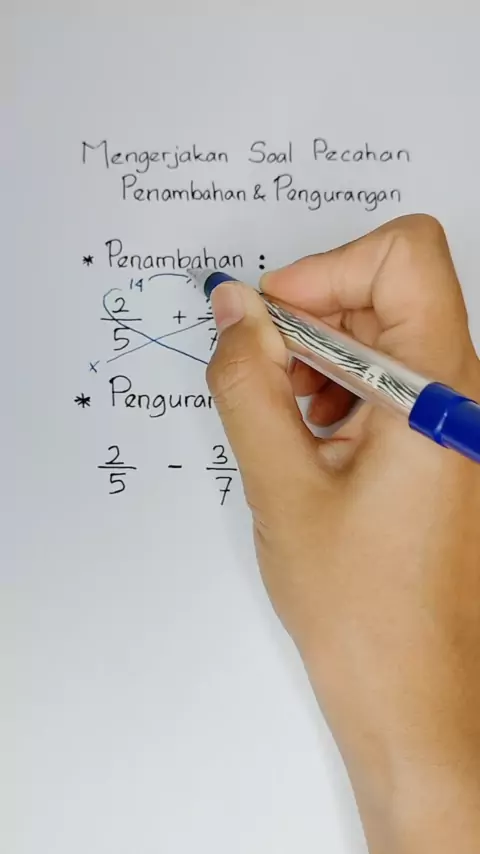 Mengerjakan Soal Pecahan
Penambahan & Pengurangan
* Penambahan :
14
2
5
+
7
x
* Pengurar
2
5
-
3
7